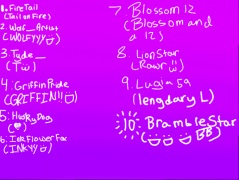 1. FireTail
(Tail on Fire)
2. Wolf_Artist
(WOLFYYY)
3.
4. GriffinPride
(GRIFFIN!!)
5. HuskyDog
6. InkFlowerFox
(INKY!!)
7. Blossom12
(Blossom and
a 12)
8. LionStar
(Rawr)
9. Lugia59
(lengdary L)
10. BrambleStar
(BB)